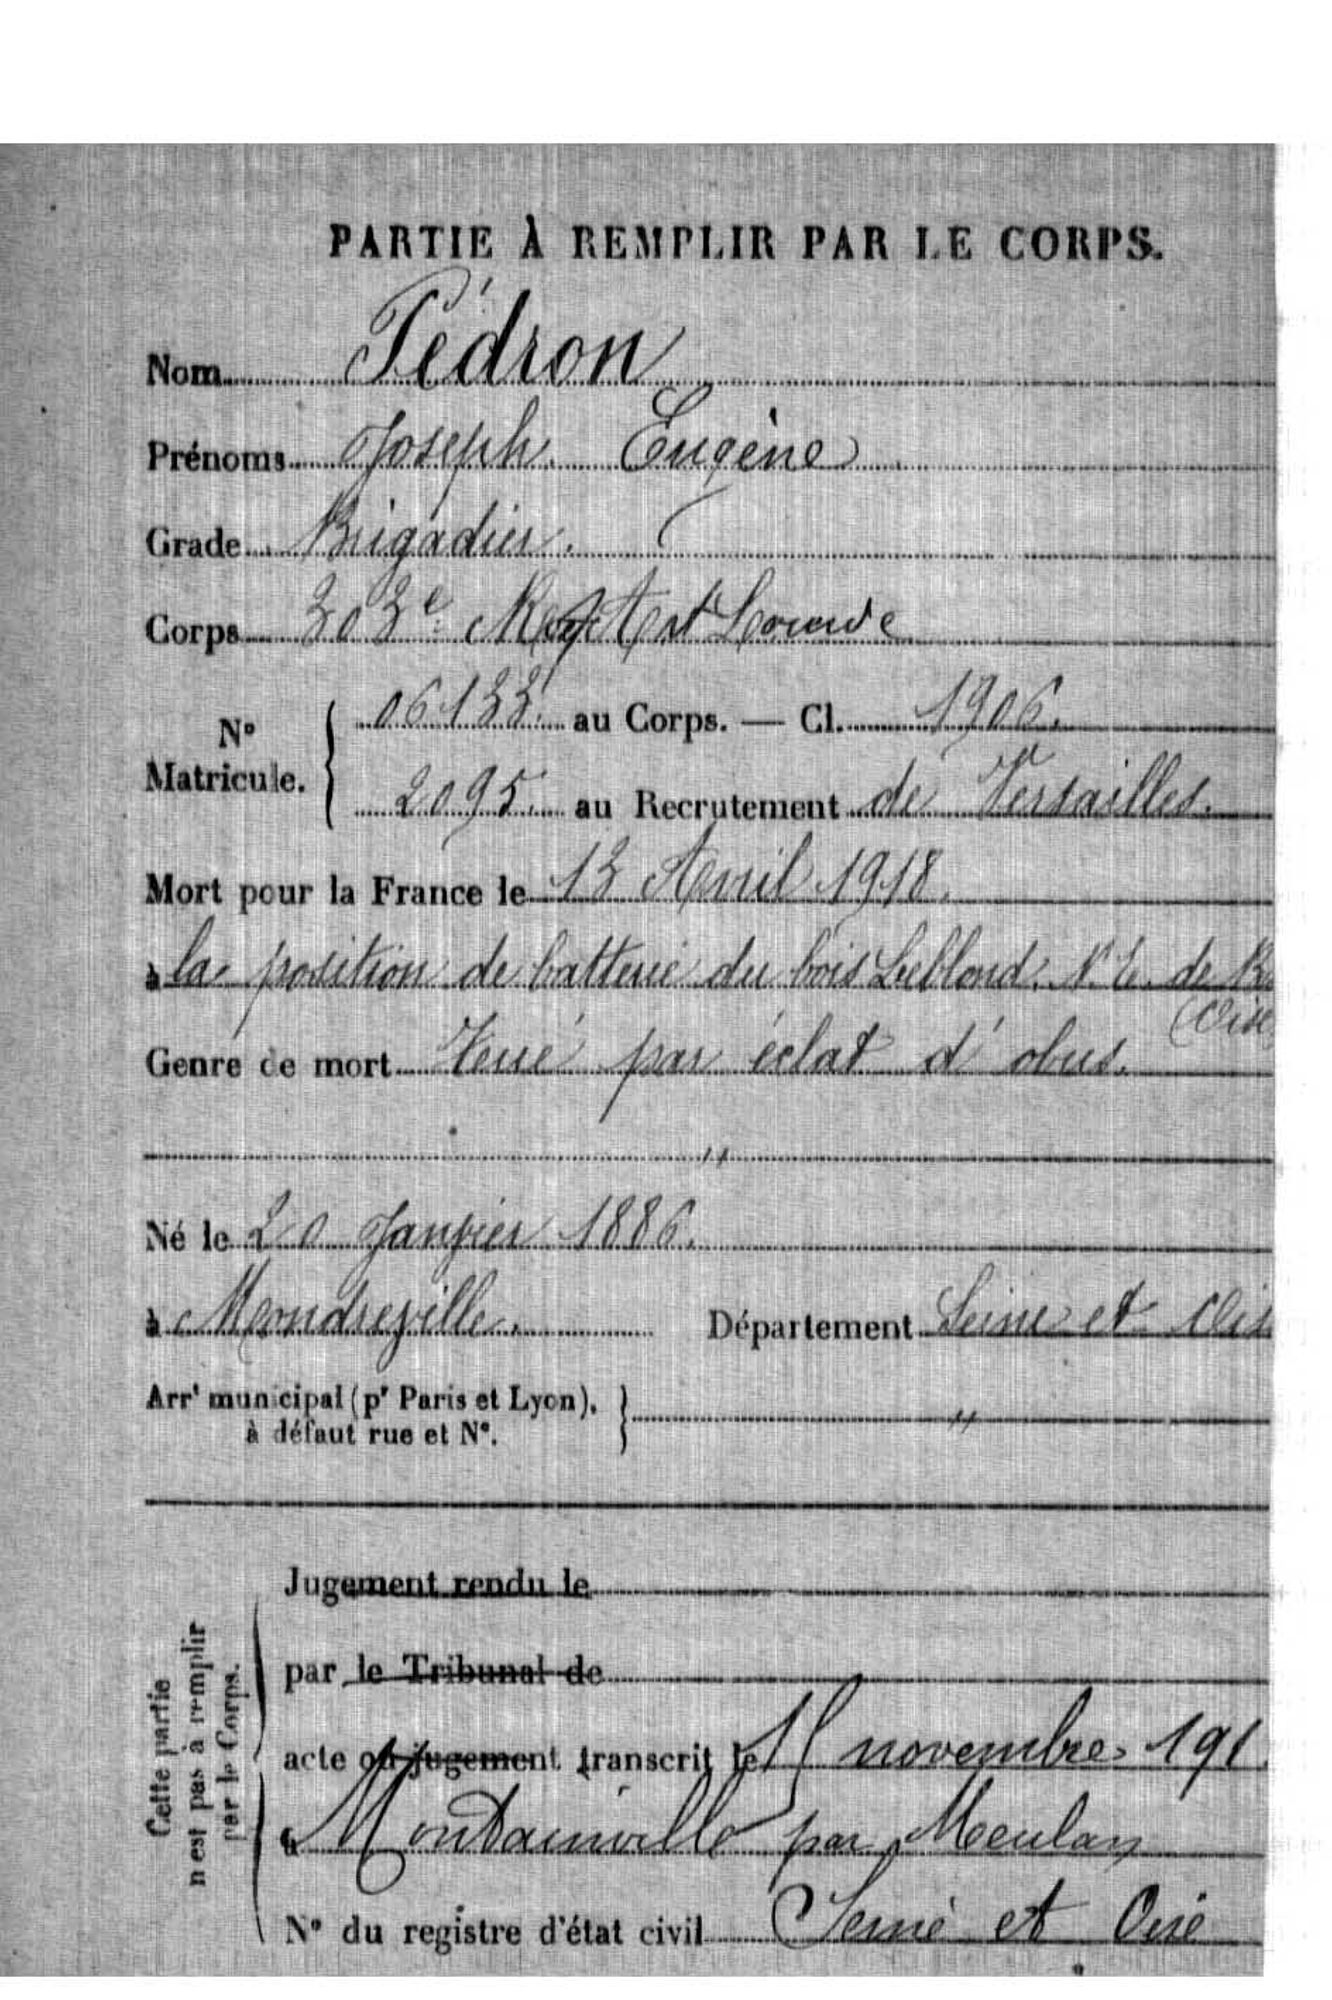 PARTIE À REMPLIR PAR LE CORPS.
Nom Pédron
Prénoms Joseph Eugène
Grade Brigadier.
Corps 303e Regt Art Lourde
No Matricule. 06133 au Corps. — Cl. 1906.
2095 au Recrutement de Versailles.
Mort pour la France le 13 Avril 1918.
à la position de batterie du bois Leblond. N. E. de
(Oise
Genre de mort Tué par éclat d'obus.
"
Né le 20 Janvier 1886.
à Mondreville. Département Seine et Ois
Arrt municipal (pr Paris et Lyon), à défaut rue et No. "
Cette partie n'est pas à remplir par le Corps.
Jugement rendu le
par le Tribunal de
acte ou jugement transcrit le novembre 191
à Montainville par Meulan
No du registre d'état civil Seine et Oise